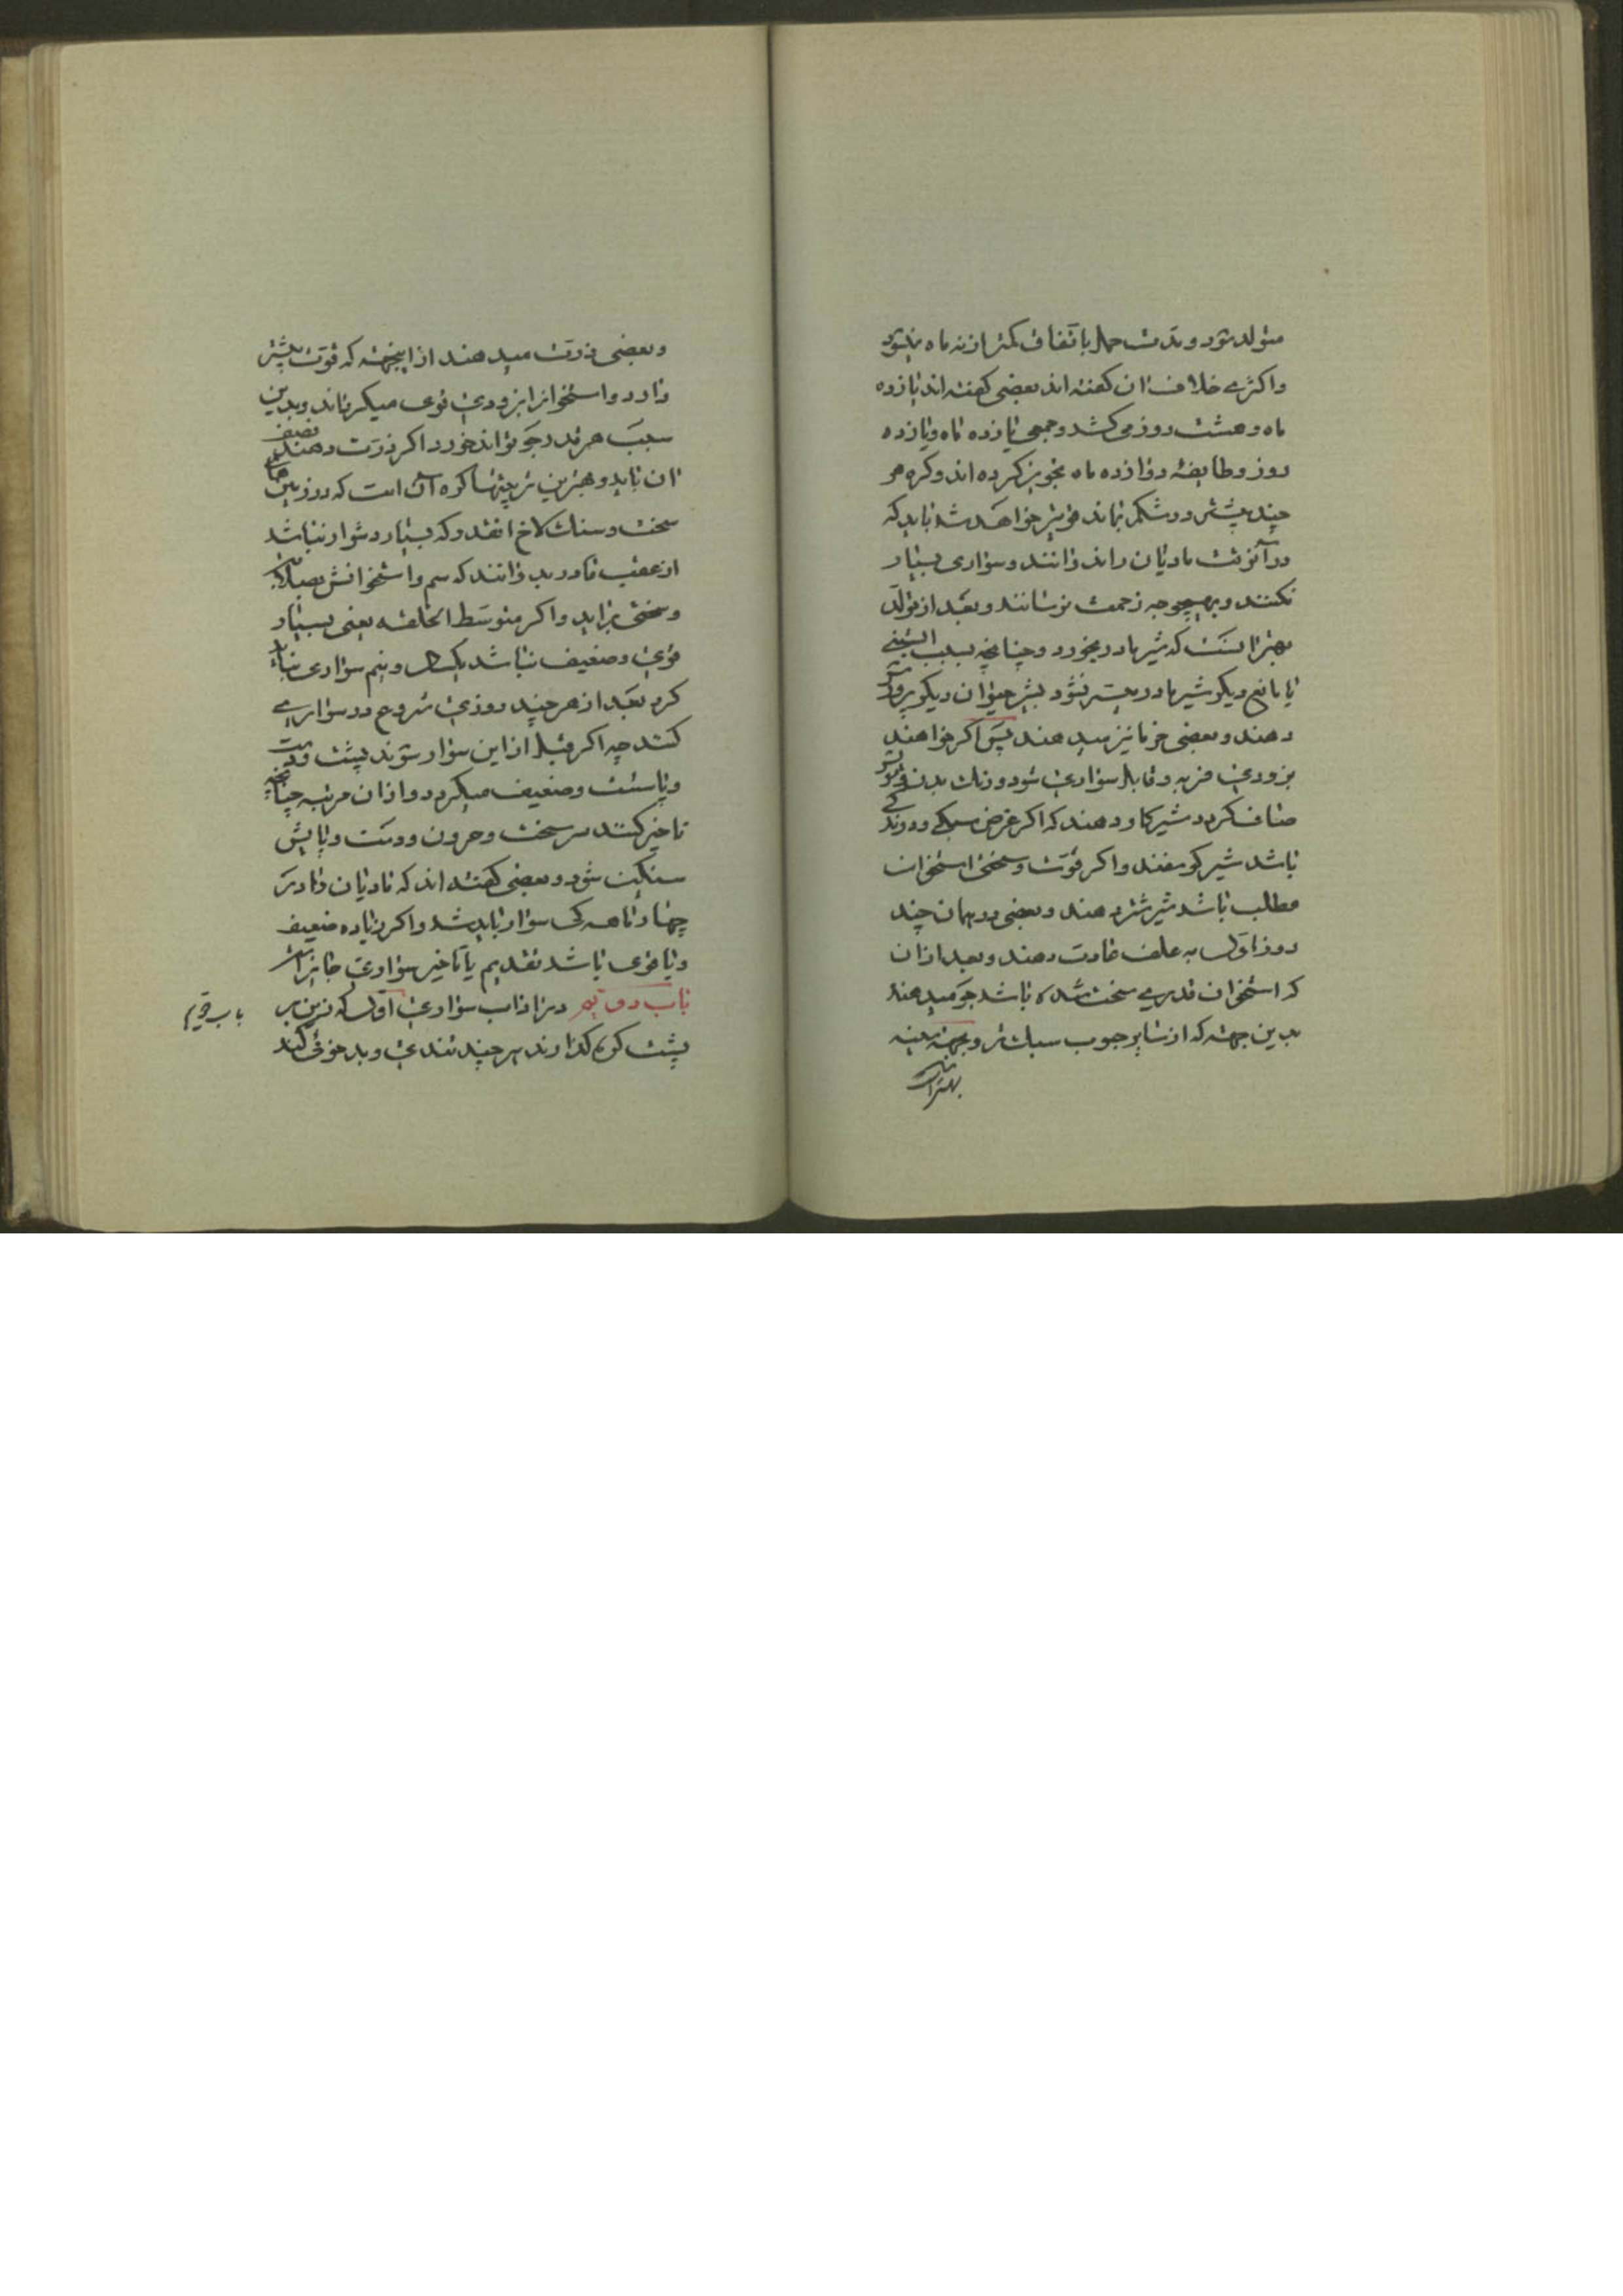 متولد شود و مدت حمل باتفاق کمتر از نه ماه نمیشود
واکثرے خلاف ان کفته اند بعضی کفته اند یازده
ماه و هشت روز می کشد و جمعی یازده ماه و یازده
روز و طایفهٔ دوازده ماه تجویز کرده اند و کره هر
چند بیشتر در شکم بماند قوی‌تر خواهد شد باید که
در آنوقت مادیان را ندوانند و سواری بسیار
نکنند و بهیچوجه زحمت نرسانند و بعد از تولد
بهتر انست که شیر مادر بخورد و چنانچه بسبب
یا مانع دیکر شیر مادر میسر نشود بشیر حیوان دیکر پرورش
دهند و بعضی خرما نیز میدهند پس اکر خواهند
بزودی فربه و قابل سواری شود و رنک بدن و مویش
صاف کردد شیر کاو دهند که اکر غرض سبکی و دوندکی
باشد شیر کوسفند و اکر قوّت و سختی استخوان
مطلب باشد شیر شتر دهند و بعضی در همان چند
روز اوّل به علف عادت دهند و بعد از ان
که استخوان قدرے سخت شده باشد جو میدهند
بدین جهته که از سایر حبوب سبک تر و بجهته معینه
بهتر است
و بعضی ذرّت میدهند از اینجهته که قوّت بیشتر
دارد و استخوانرا بزودی قوی میکرداند و بدین
سبب هر قدر جو تواند خورد اکر ذرّت دهند نصف
ان باید و بهترین تربیتها کره آن است که در زمین هاے
سخت و سنک لاخ افتد و که بسیار دشوار نباشد
از عقب مادر بدوانند که سم و استخوانش بصلابت
و سختی براید و اکر متوسّط الخلقه یعنی بسیار
قوی و ضعیف نباشد یکسال و نیم سواری نباید
کرد بعد از هر چند روزی شروع در سوارے
کنند چه اکر قبل از این سوار شوند پشت و دست
و پا سست و ضعیف میکردد و از ان مرتبه چنانچه
تاخیر کنند سر سخت و حرون و دست و پایش
سنکین شود و بعضی کفته اند که مادیان را در
چهار ماهه کی سوار باید شد و اکر زیاده ضعیف
و یا قوی باشد تقدیم یا تاخیر سواری جایز است
باب دویم در اداب سواری اوّل که زین بر
پشت کره کذارند هر چند تندی و بد خوئی کند
باب دویم